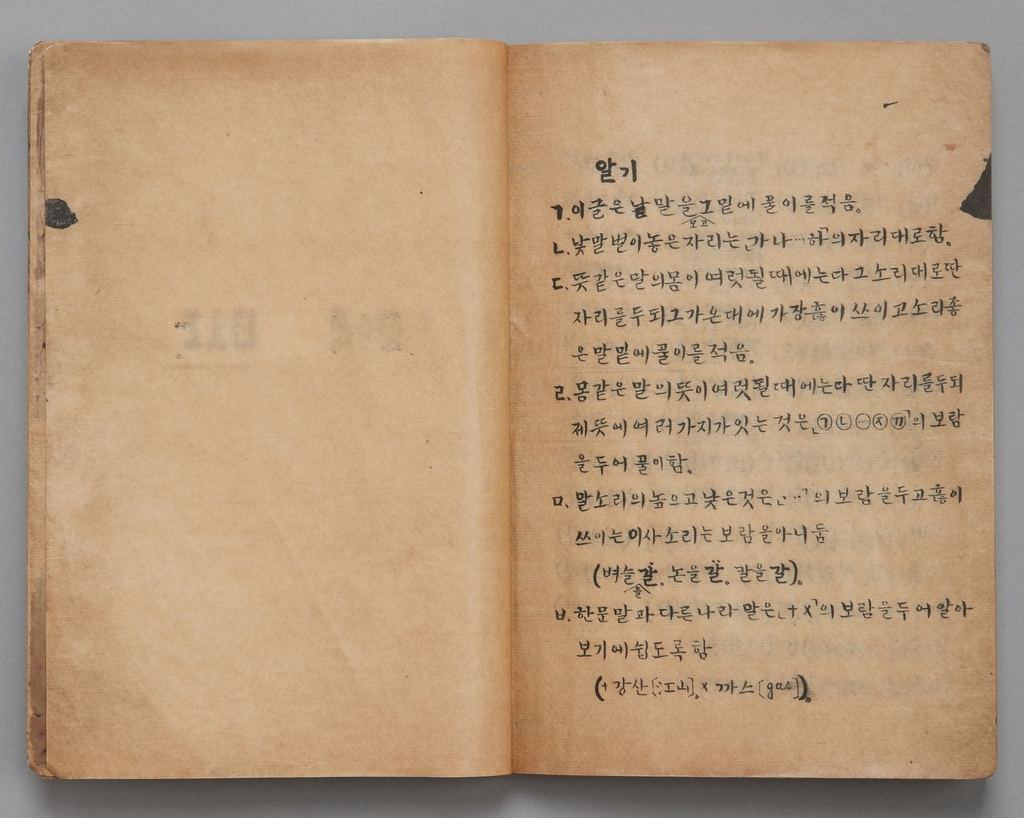 알기
ㄱ. 이글은 낱말을 그 밑에 풀이를 적음.
모호
ㄴ. 낱말벌이놓은자리는 「가나…하」의자리대로함.
ㄷ. 뜻같은말의몸이여럿될때에는다그소리대로딴
자리를두되그가온대에가장흖이쓰이고소리좋
은말밑에풀이를적음.
ㄹ. 몸같은말의뜻이여럿될때에는다딴자리를두되
제뜻에여러가지가잇는것은「㉠㉡㊀㉨ㄲ」의보람
을두어풀이함.
ㅁ. 말소리의높으고낮은것은「 ‥ ˙」의보람을두고흖이
쓰이는이사소리는보람을아니둠
(벼슬갈. 논을갈. 칼을갈).
을
ㅂ. 한문말과다른나라말은「+ ×」의보람을두어알아
보기에쉽도록함
(+강산[江山]. ×까스[gas]).